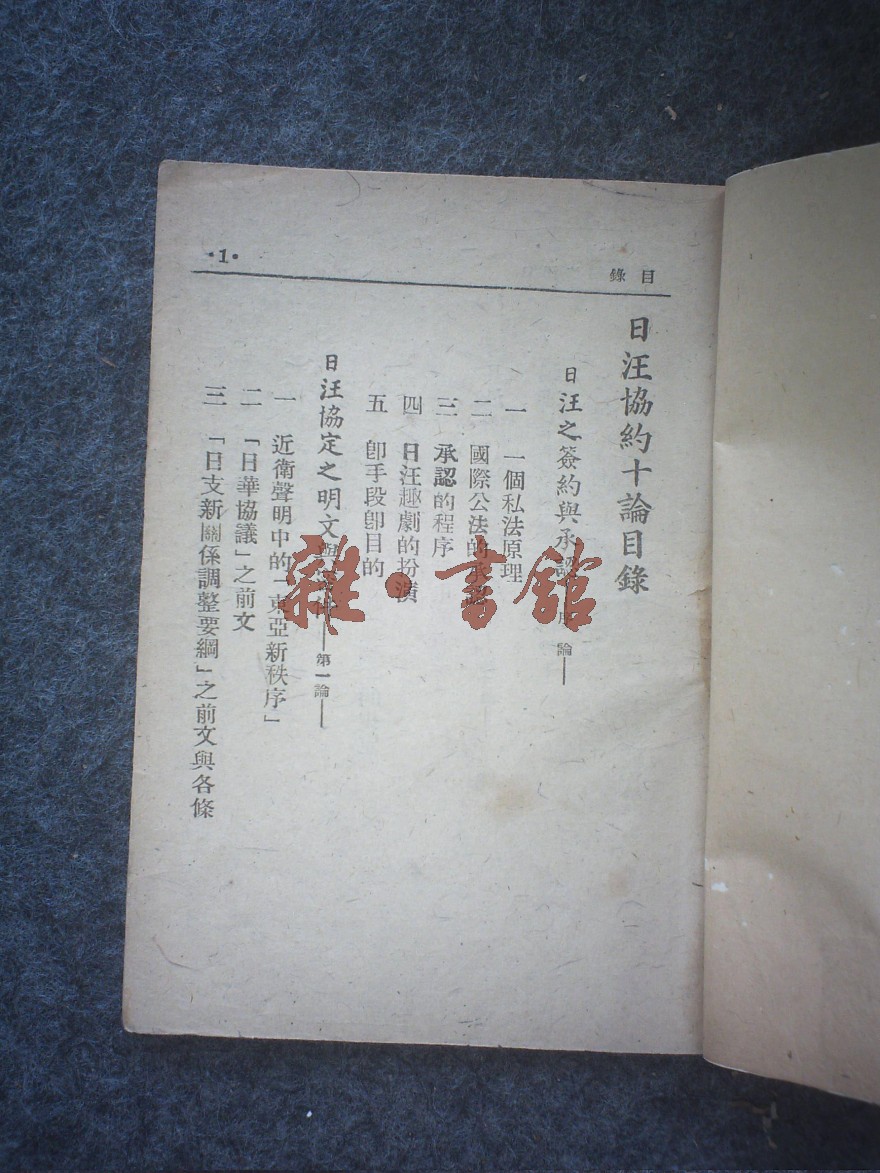 目錄
·1·
日汪協約十論目錄
日汪之簽約與承認 論——
一 一個私法原理
二 國際公法的承認
三 承認的程序
四 日汪趣劇的扮演
五 卽手段卽目的
日汪協定之明文與 ——第一論——
一 近衛聲明中的「東亞新秩序」
二 「日華協議」之前文
三 「日支新關係調整要綱」之前文與各條
雜·書館